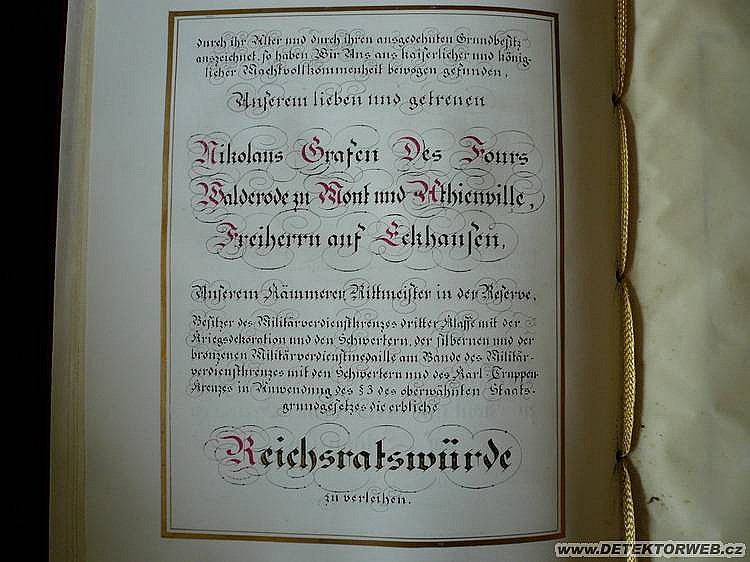 durch ihr Alter und durch ihren ausgedehnten Grundbesitz
auszeichnet, so haben Wir Uns aus kaiserlicher und könig-
licher Machtvollkommenheit bewogen gefunden,
Unserem lieben und getreuen
Nikolaus Grafen Des Fours
Walderode zu Mont und Athienville,
Freiherrn auf Eckhausen,
Unserem Kämmerer, Rittmeister in der Reserve,
Besitzer des Militärverdienstkreuzes dritter Klasse mit der
Kriegsdekoration und den Schwertern, der silbernen und der
bronzenen Militärverdienstmedaille am Bande des Militär-
verdienstkreuzes mit den Schwertern und des Karl-Truppen-
Kreuzes in Anwendung des § 3 des oberwähnten Staats-
grundgesetzes die erbliche
Reichsratswürde
zu verleihen.
www.DETEKTORWEB.cz